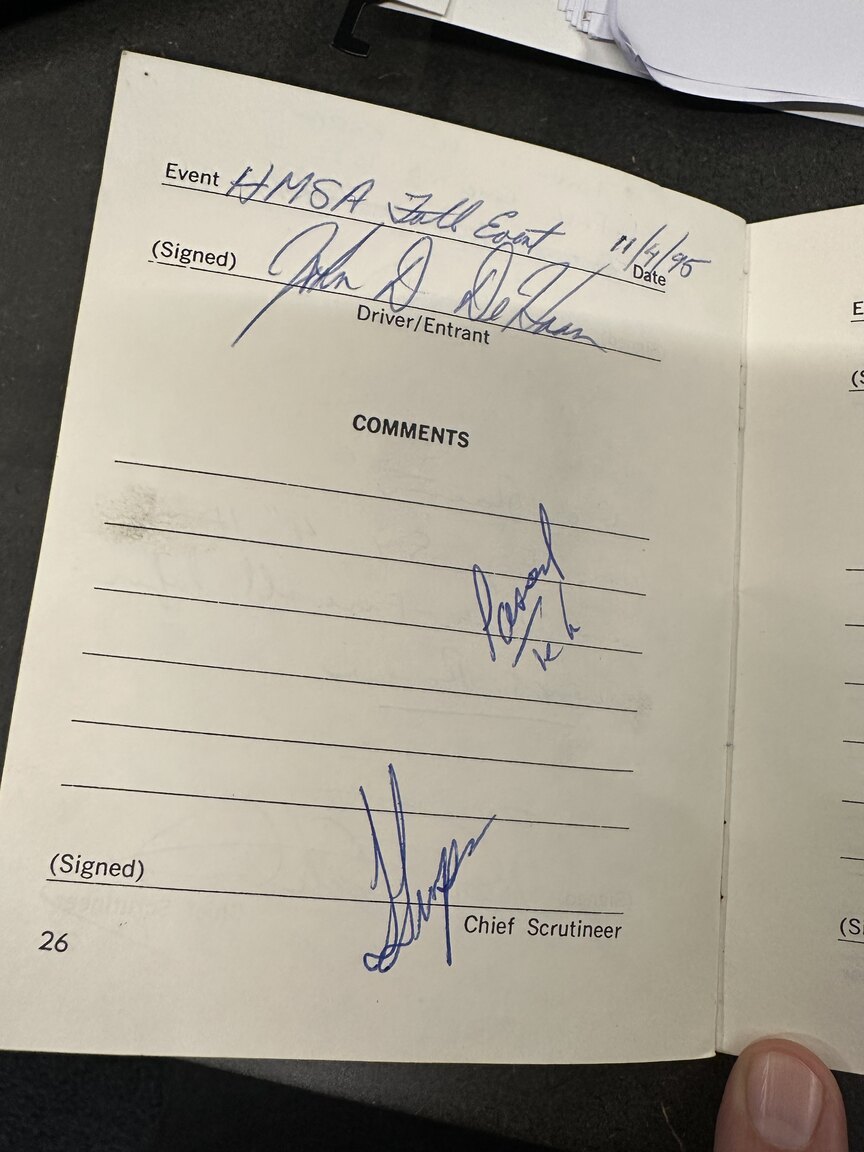 Event HMSA Fall Event 11/4/95
Date
(Signed) John D DeHaan
Driver/Entrant
COMMENTS
(Signed)
Chief Scrutineer
26
E
(S
(Si